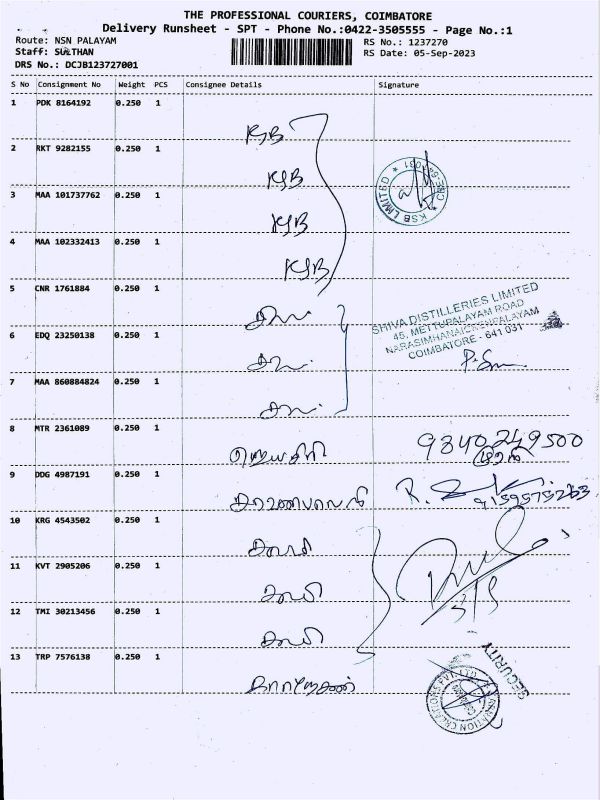 THE PROFESSIONAL COURIERS, COIMBATORE
Delivery Runsheet - SPT - Phone No.:0422-3505555 - Page No.:1
Route: NSN PALAYAM
RS No.: 1237270
Staff: SULTHAN
RS Date: 05-Sep-2023
DRS No.: DCJB123727001
S No Consignment No Weight PCS Consignee Details Signature
1 PDK 8164192 0.250 1 KSB
2 RKT 9282155 0.250 1 KSB
KSB LIMITED
3 MAA 101737762 0.250 1 KSB
4 MAA 102332413 0.250 1 KSB
5 CNR 1761884 0.250 1
SHIVA DISTILLERIES LIMITED
45, METTUPALAYAM ROAD
NARASIMHANAICKENPALAYAM
COIMBATORE - 641 031
6 EDQ 23250138 0.250 1
7 MAA 860884824 0.250 1
8 MTR 2361089 0.250 1 9840249500
9 DDG 4987191 0.250 1
10 KRG 4543502 0.250 1
11 KVT 2905206 0.250 1
12 TMI 30213456 0.250 1
13 TRP 7576138 0.250 1
SECURITY